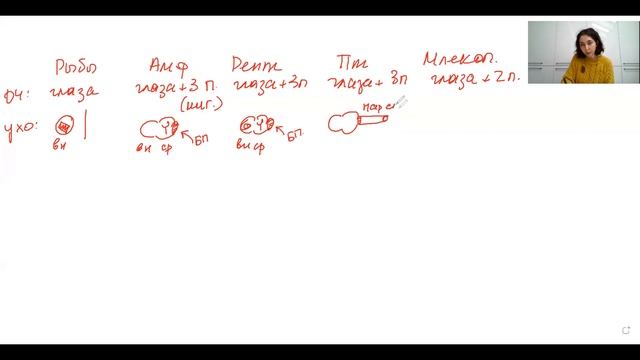 Рыбы Амф Репт Пт Млекоп.
ОЧ: глаза глаза+3 п. глаза+3п глаза+3п глаза+2п.
(миг.)
ухо: нар сл
БП БП
вн вн ср вн ср